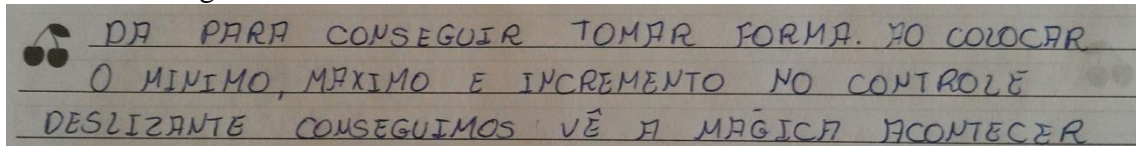 DA PARA CONSEGUIR TOMAR FORMA. AO COLOCAR
O MINIMO, MAXIMO E INCREMENTO NO CONTROLE
DESLIZANTE CONSEGUIMOS VÊ A MÁGICA ACONTECER